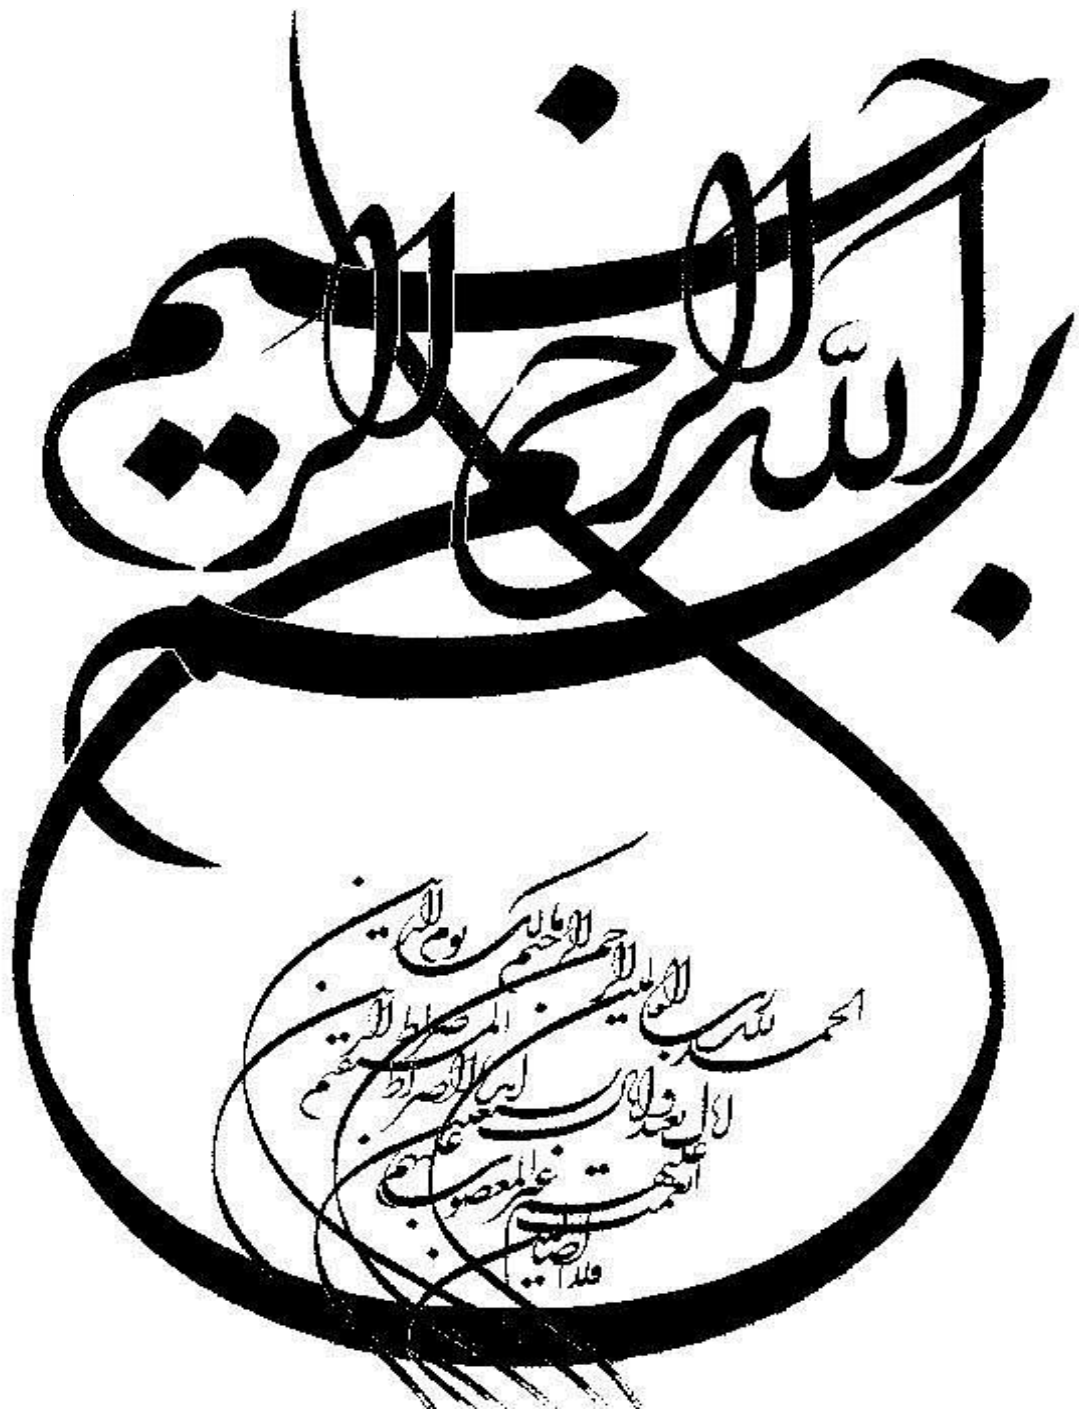 بسم الله الرحمن الرحيم
الحمد لله رب العالمين الرحمن الرحيم مالك يوم الدين
إياك نعبد وإياك نستعين اهدنا الصراط المستقيم صراط الذين
أنعمت عليهم غير المغضوب عليهم
ولا الضالين